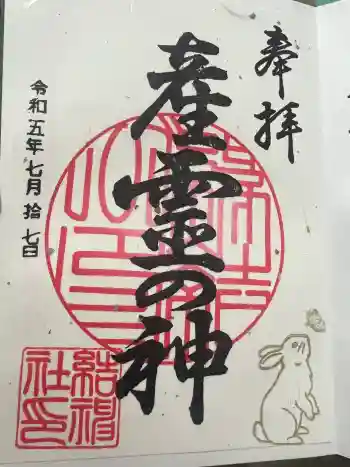 奉拝
産霊の神
令和五年七月拾七日
結神
社印